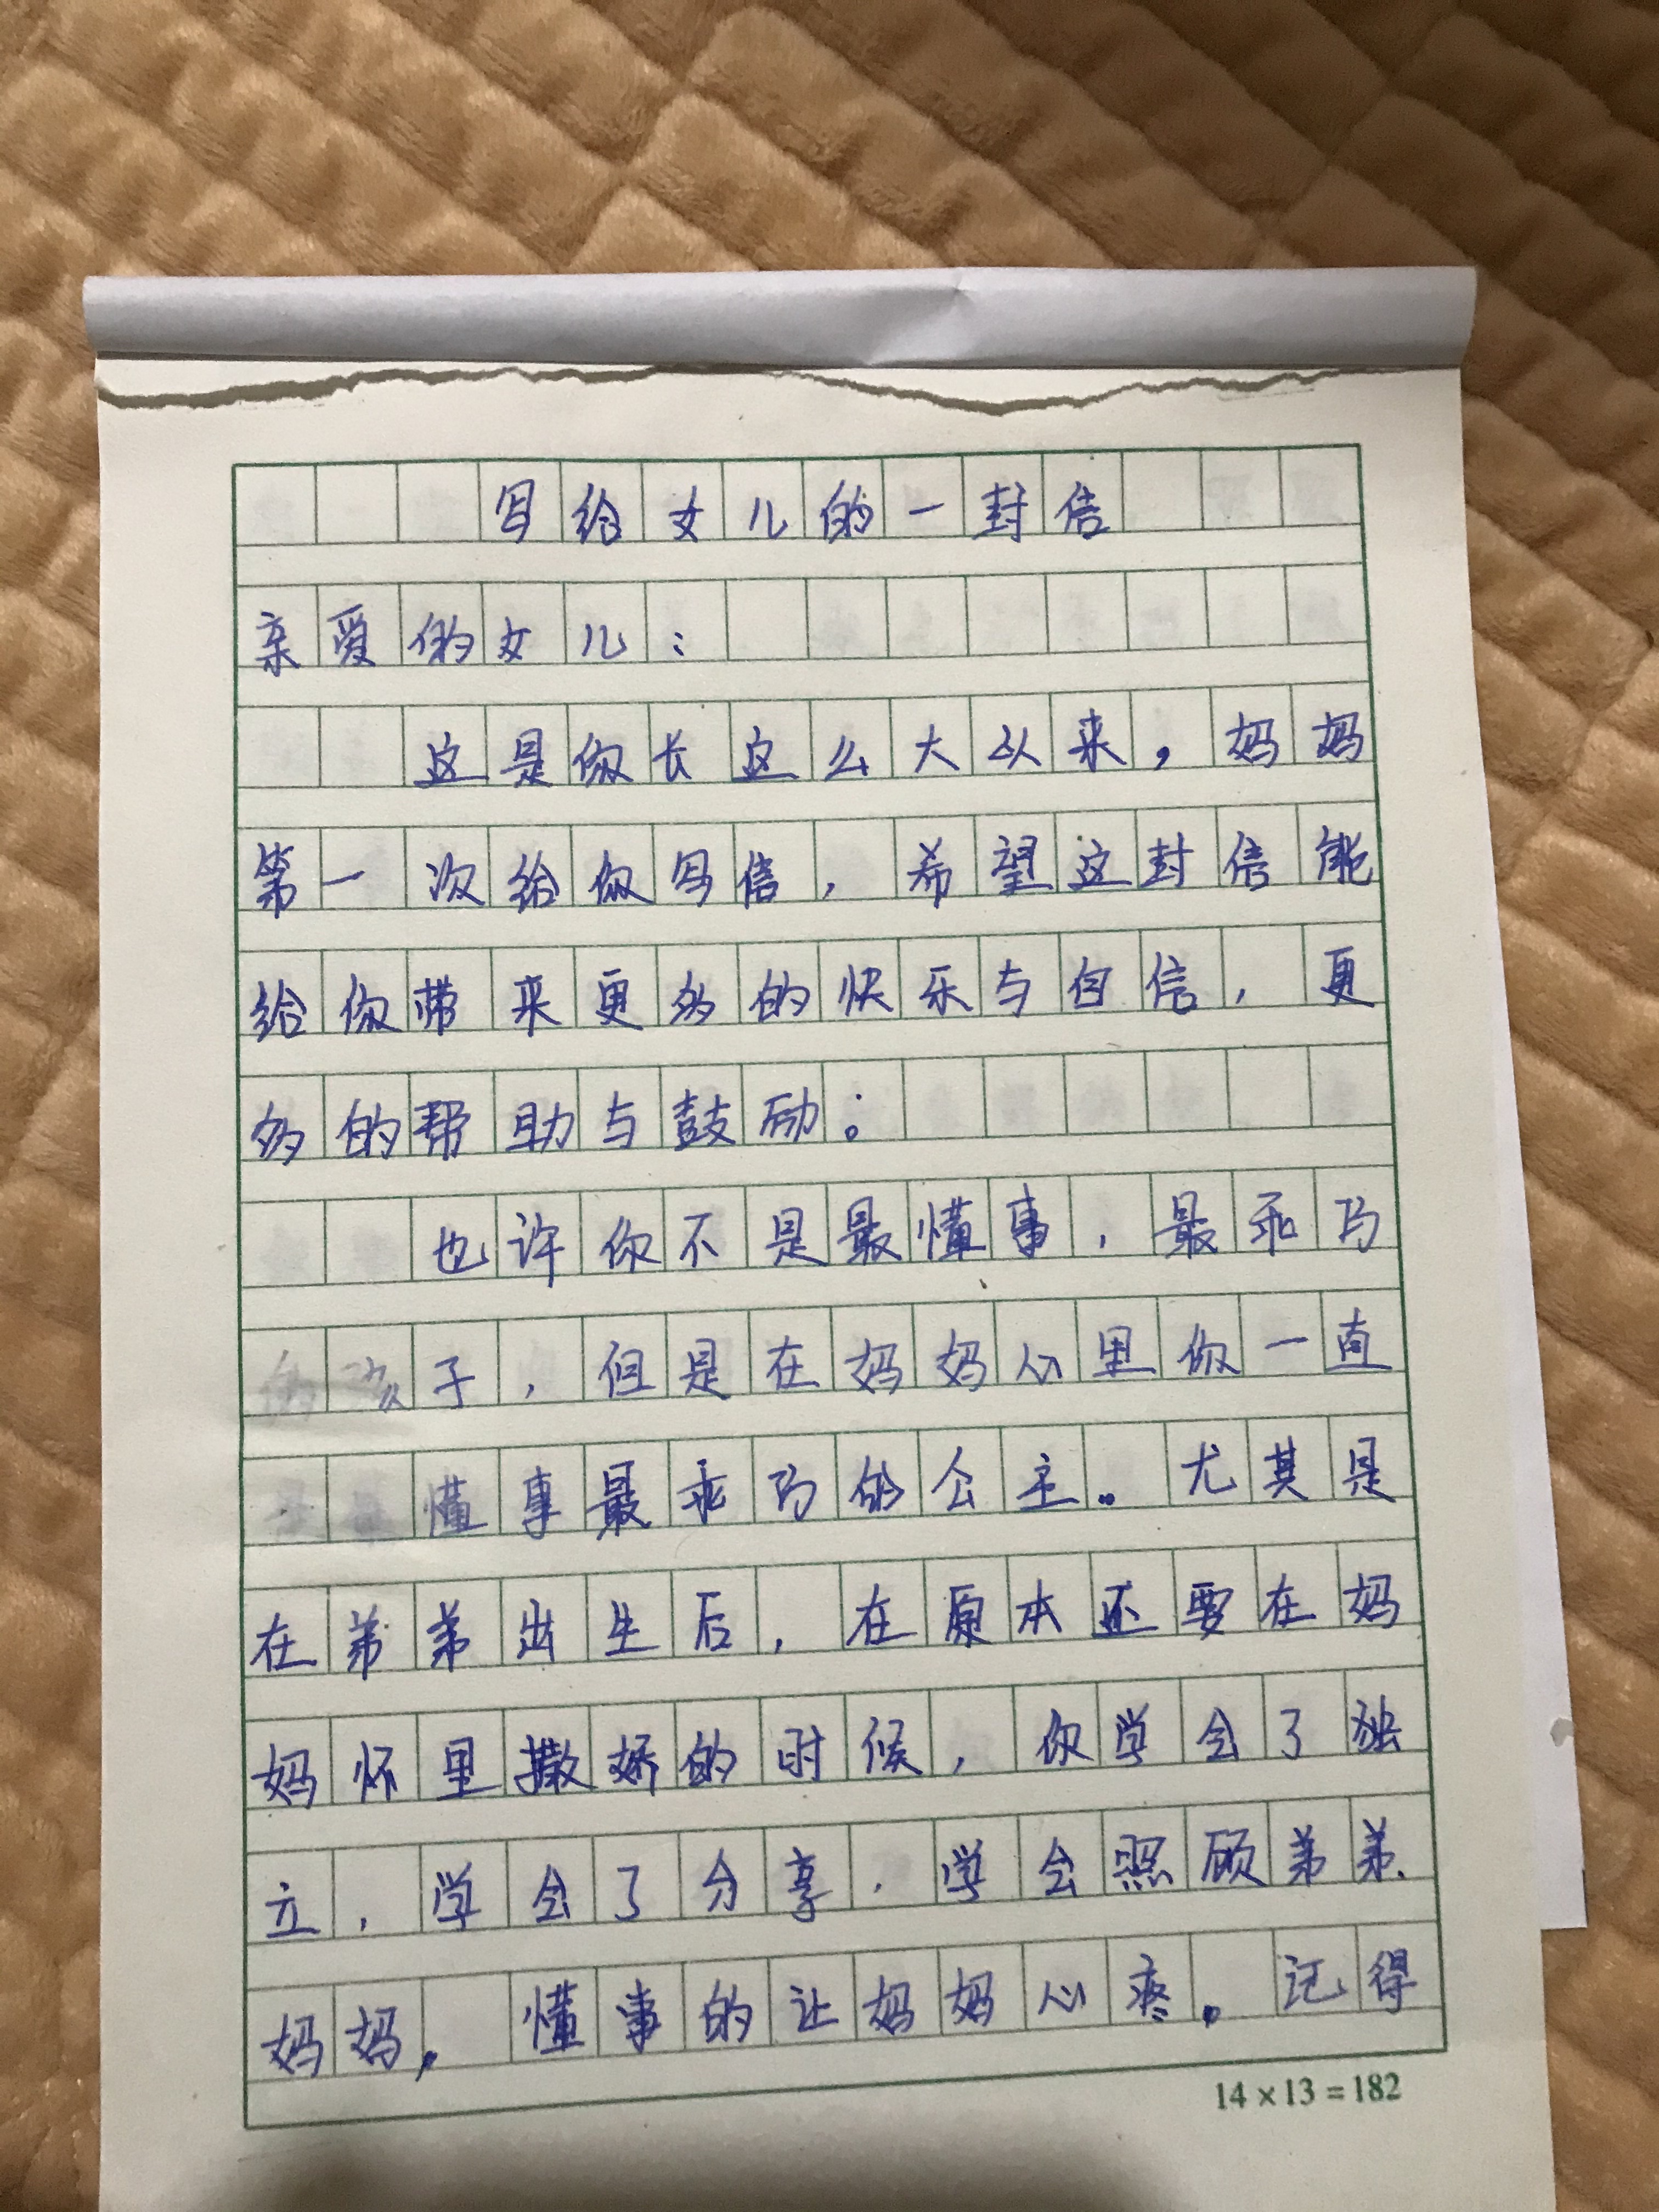 写给女儿的一封信
亲爱的女儿:
这是你长这么大以来,妈妈
第一次给你写信,希望这封信能
给你带来更多的快乐与自信,更
多的帮助与鼓励;
也许你不是最懂事,最乖巧
的孩子,但是在妈妈心里你一直
懂事最乖巧的公主。尤其是
在弟弟出生后,在原本还要在妈
妈怀里撒娇的时候,你学会了独
立,学会了分享,学会照顾弟弟、
妈妈,懂事的让妈妈心疼。记得
14×13=182